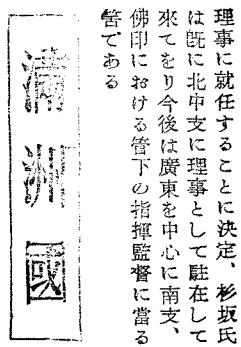 理事に就任することに決定、杉坂氏
は既に北中支に理事として駐在して
來てをり今後は廣東を中心に南支、
佛印における管下の指揮監督に當る
筈である
滿洲國